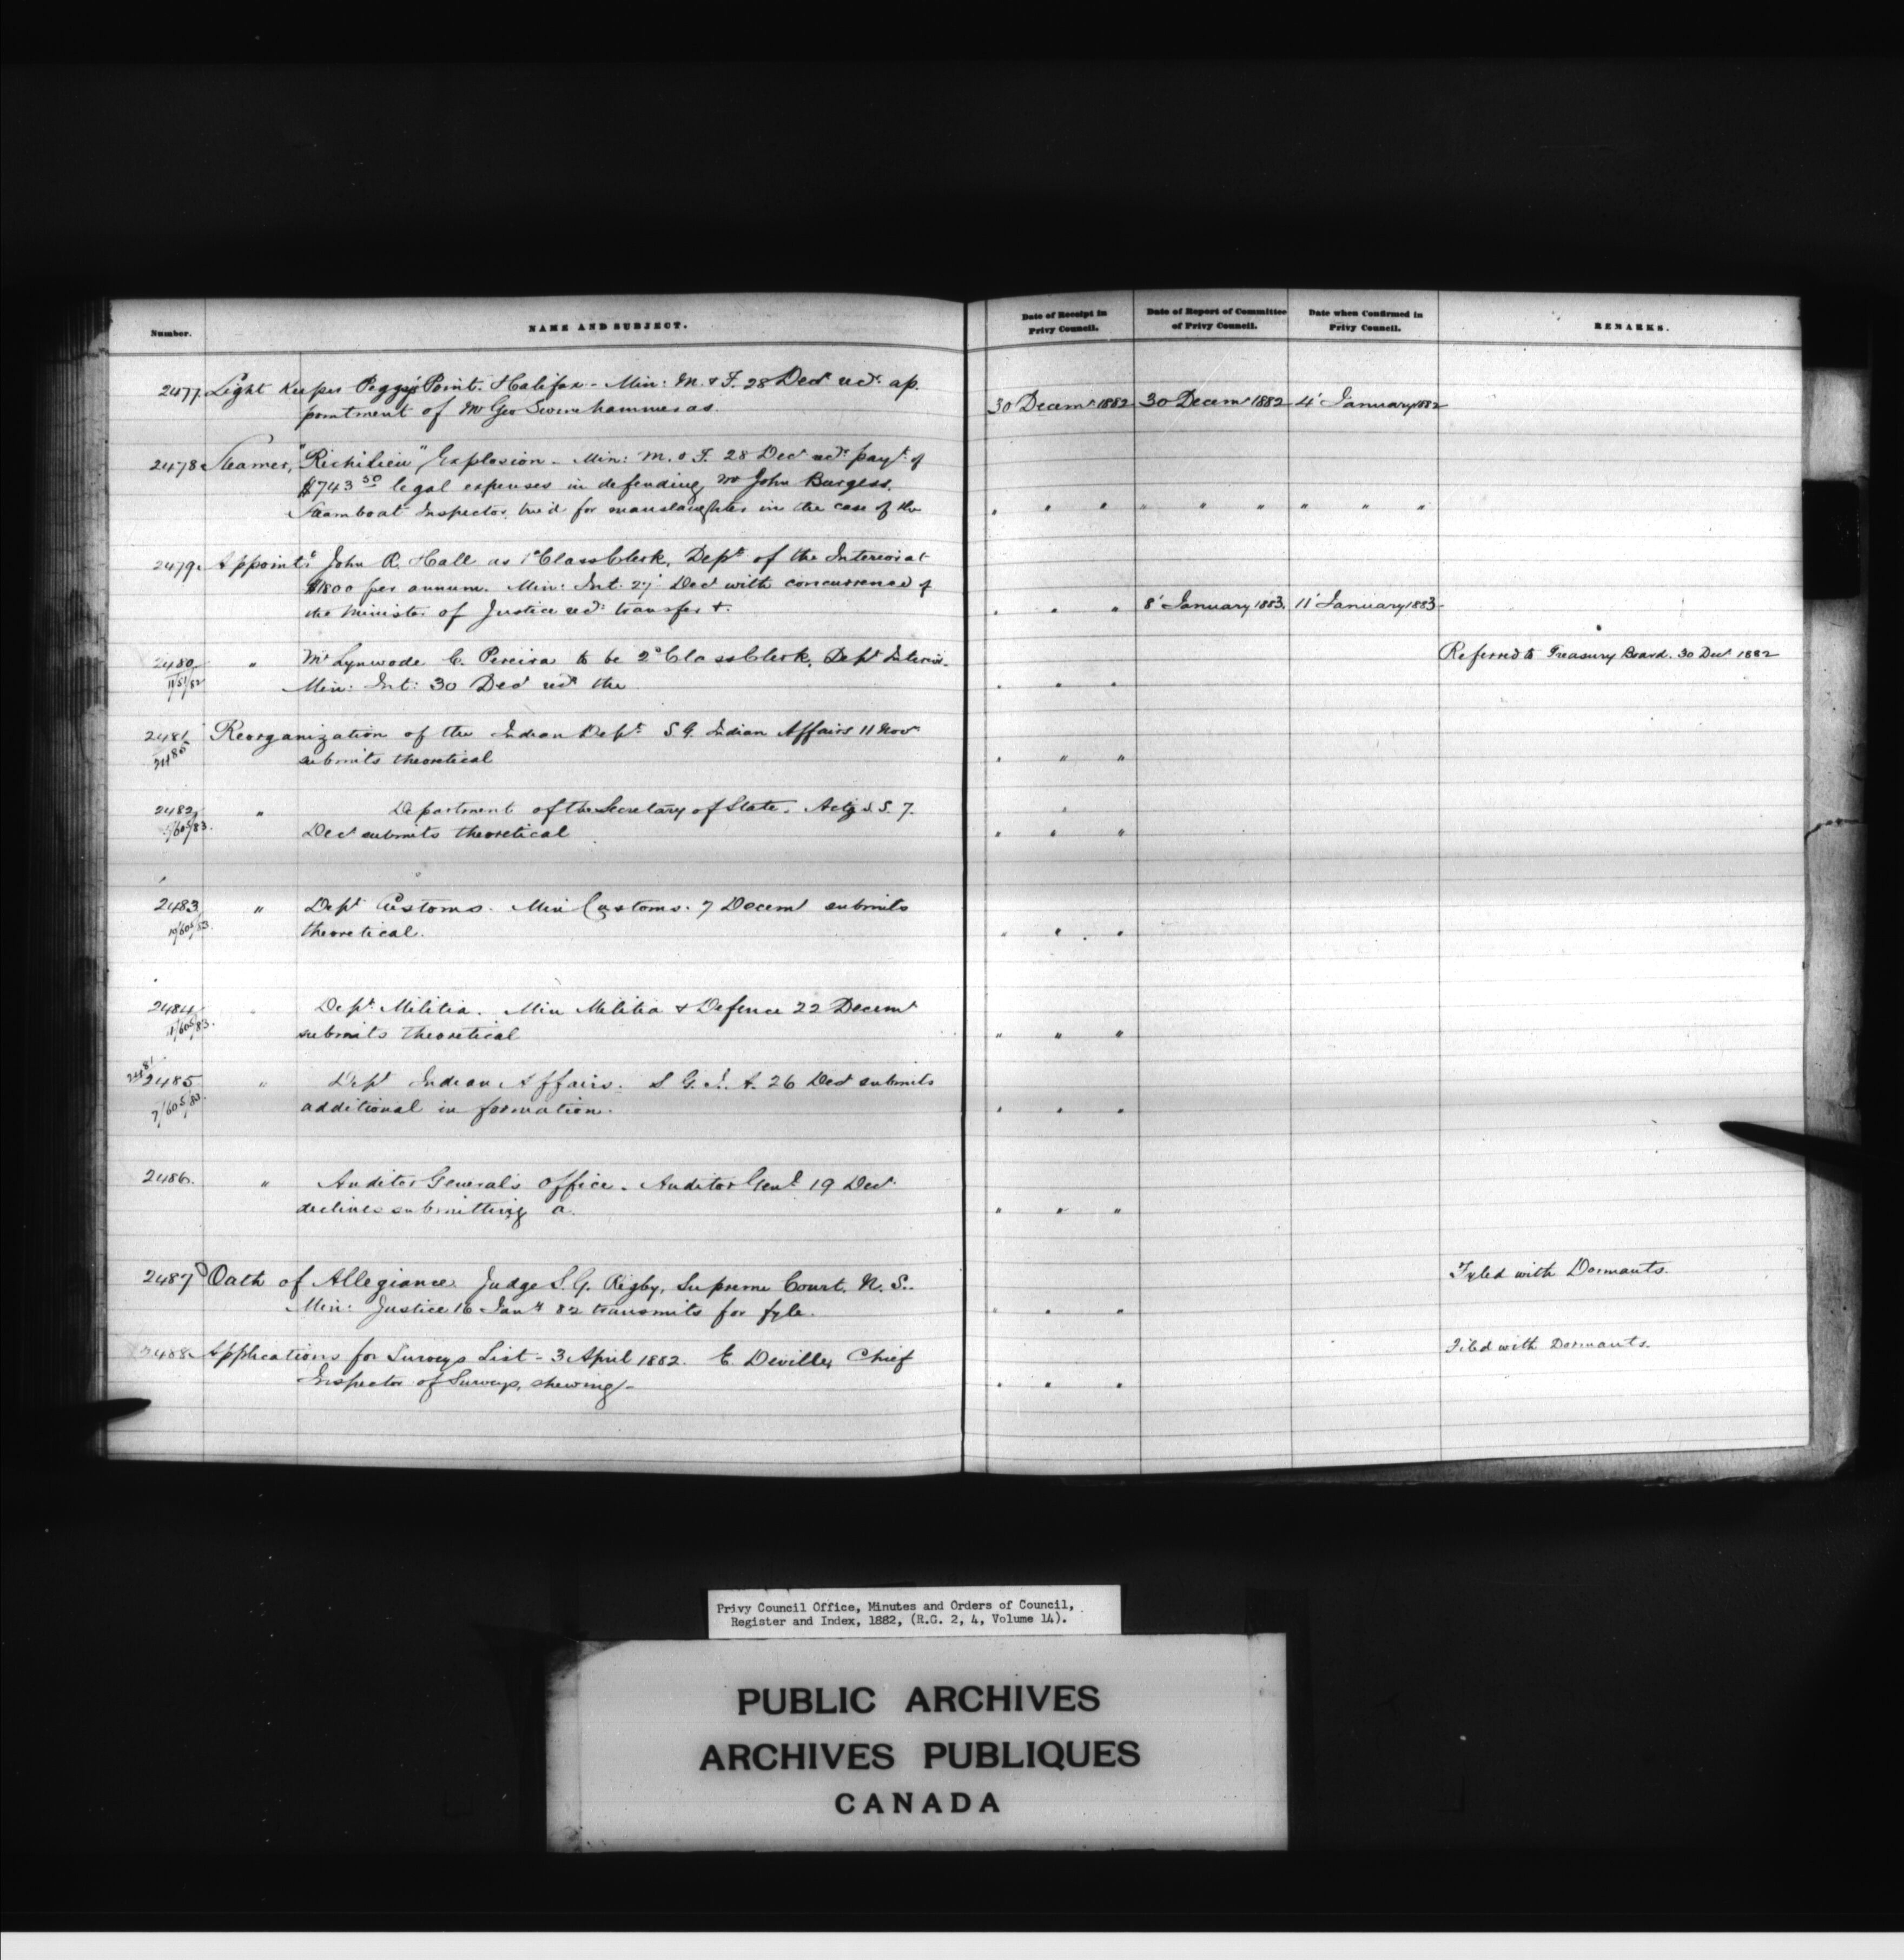 Number.
NAME AND SUBJECT.
Date of Receipt in
Privy Council.
Date of Report of Committee
of Privy Council.
Date when Confirmed in
Privy Council.
REMARKS.
2477 Light Keeper Peggy's Point. Halifax - Min: M. & F. 28 Decr recd. ap
pointment of Mr Geo Swinehammer as.
30 Decemr 1882 30 Decemr 1882 4' January 1882
2478 Steamer, "Richilieu" Explosion - Min: M. & F. 28 Decr recd. payt. of
$743 50 legal expenses in defending Mr John Burgess,
Steamboat Inspector tried for manslaughter in the case of the
" " " " " " " " "
2479. Appointt John R. Hall as 1° Class Clerk, Dept of the Interior at
$1800 per annum. Min: Int. 27' Decr with concurrence of
the Minister of Justice recd. transfer &.
" " " 8' January 1883. 11' January 1883
2480 " Mr Lynwode C. Pereira to be 2° Class Clerk, Dept Interior.
Referred to Treasury Board. 30 Decr 1882
Min: Int: 30 Decr recd the
" " "
2481 Reorganization of the Indian Dept S. G. Indian Affairs 11 Novr
2485 submits theoretical
" " "
2482 " Department of the Secretary of State, Actg S. S. 7.
Decr submits theoretical
" " "
2483 " Dept Customs. Min Customs. 7 Decemr submits
theoretical.
" " "
2484 " Dept Militia. Min Militia & Defence 22 Decemr
submits theoretical
" " "
2481
2485 " Dept Indian Affairs. S. G. I. A. 26 Decr submits
additional information.
" " "
2486. " Auditor General's Office. Auditor Genl 19 Decr
declines submitting a.
" " "
2487 Oath of Allegiance. Judge S. G. Rigby, Supreme Court. N. S..
Fyled with Dormants.
Min: Justice 16 Jany 82 transmits for fyle.
" " "
2488 Applications for Surveys List - 3 April 1882. E. Deville, Chief
Filed with Dormants.
Inspector of Surveys, shewing -
" " "
Privy Council Office, Minutes and Orders of Council,
Register and Index, 1882, (R.G. 2, 4, Volume 14).
PUBLIC ARCHIVES
ARCHIVES PUBLIQUES
CANADA